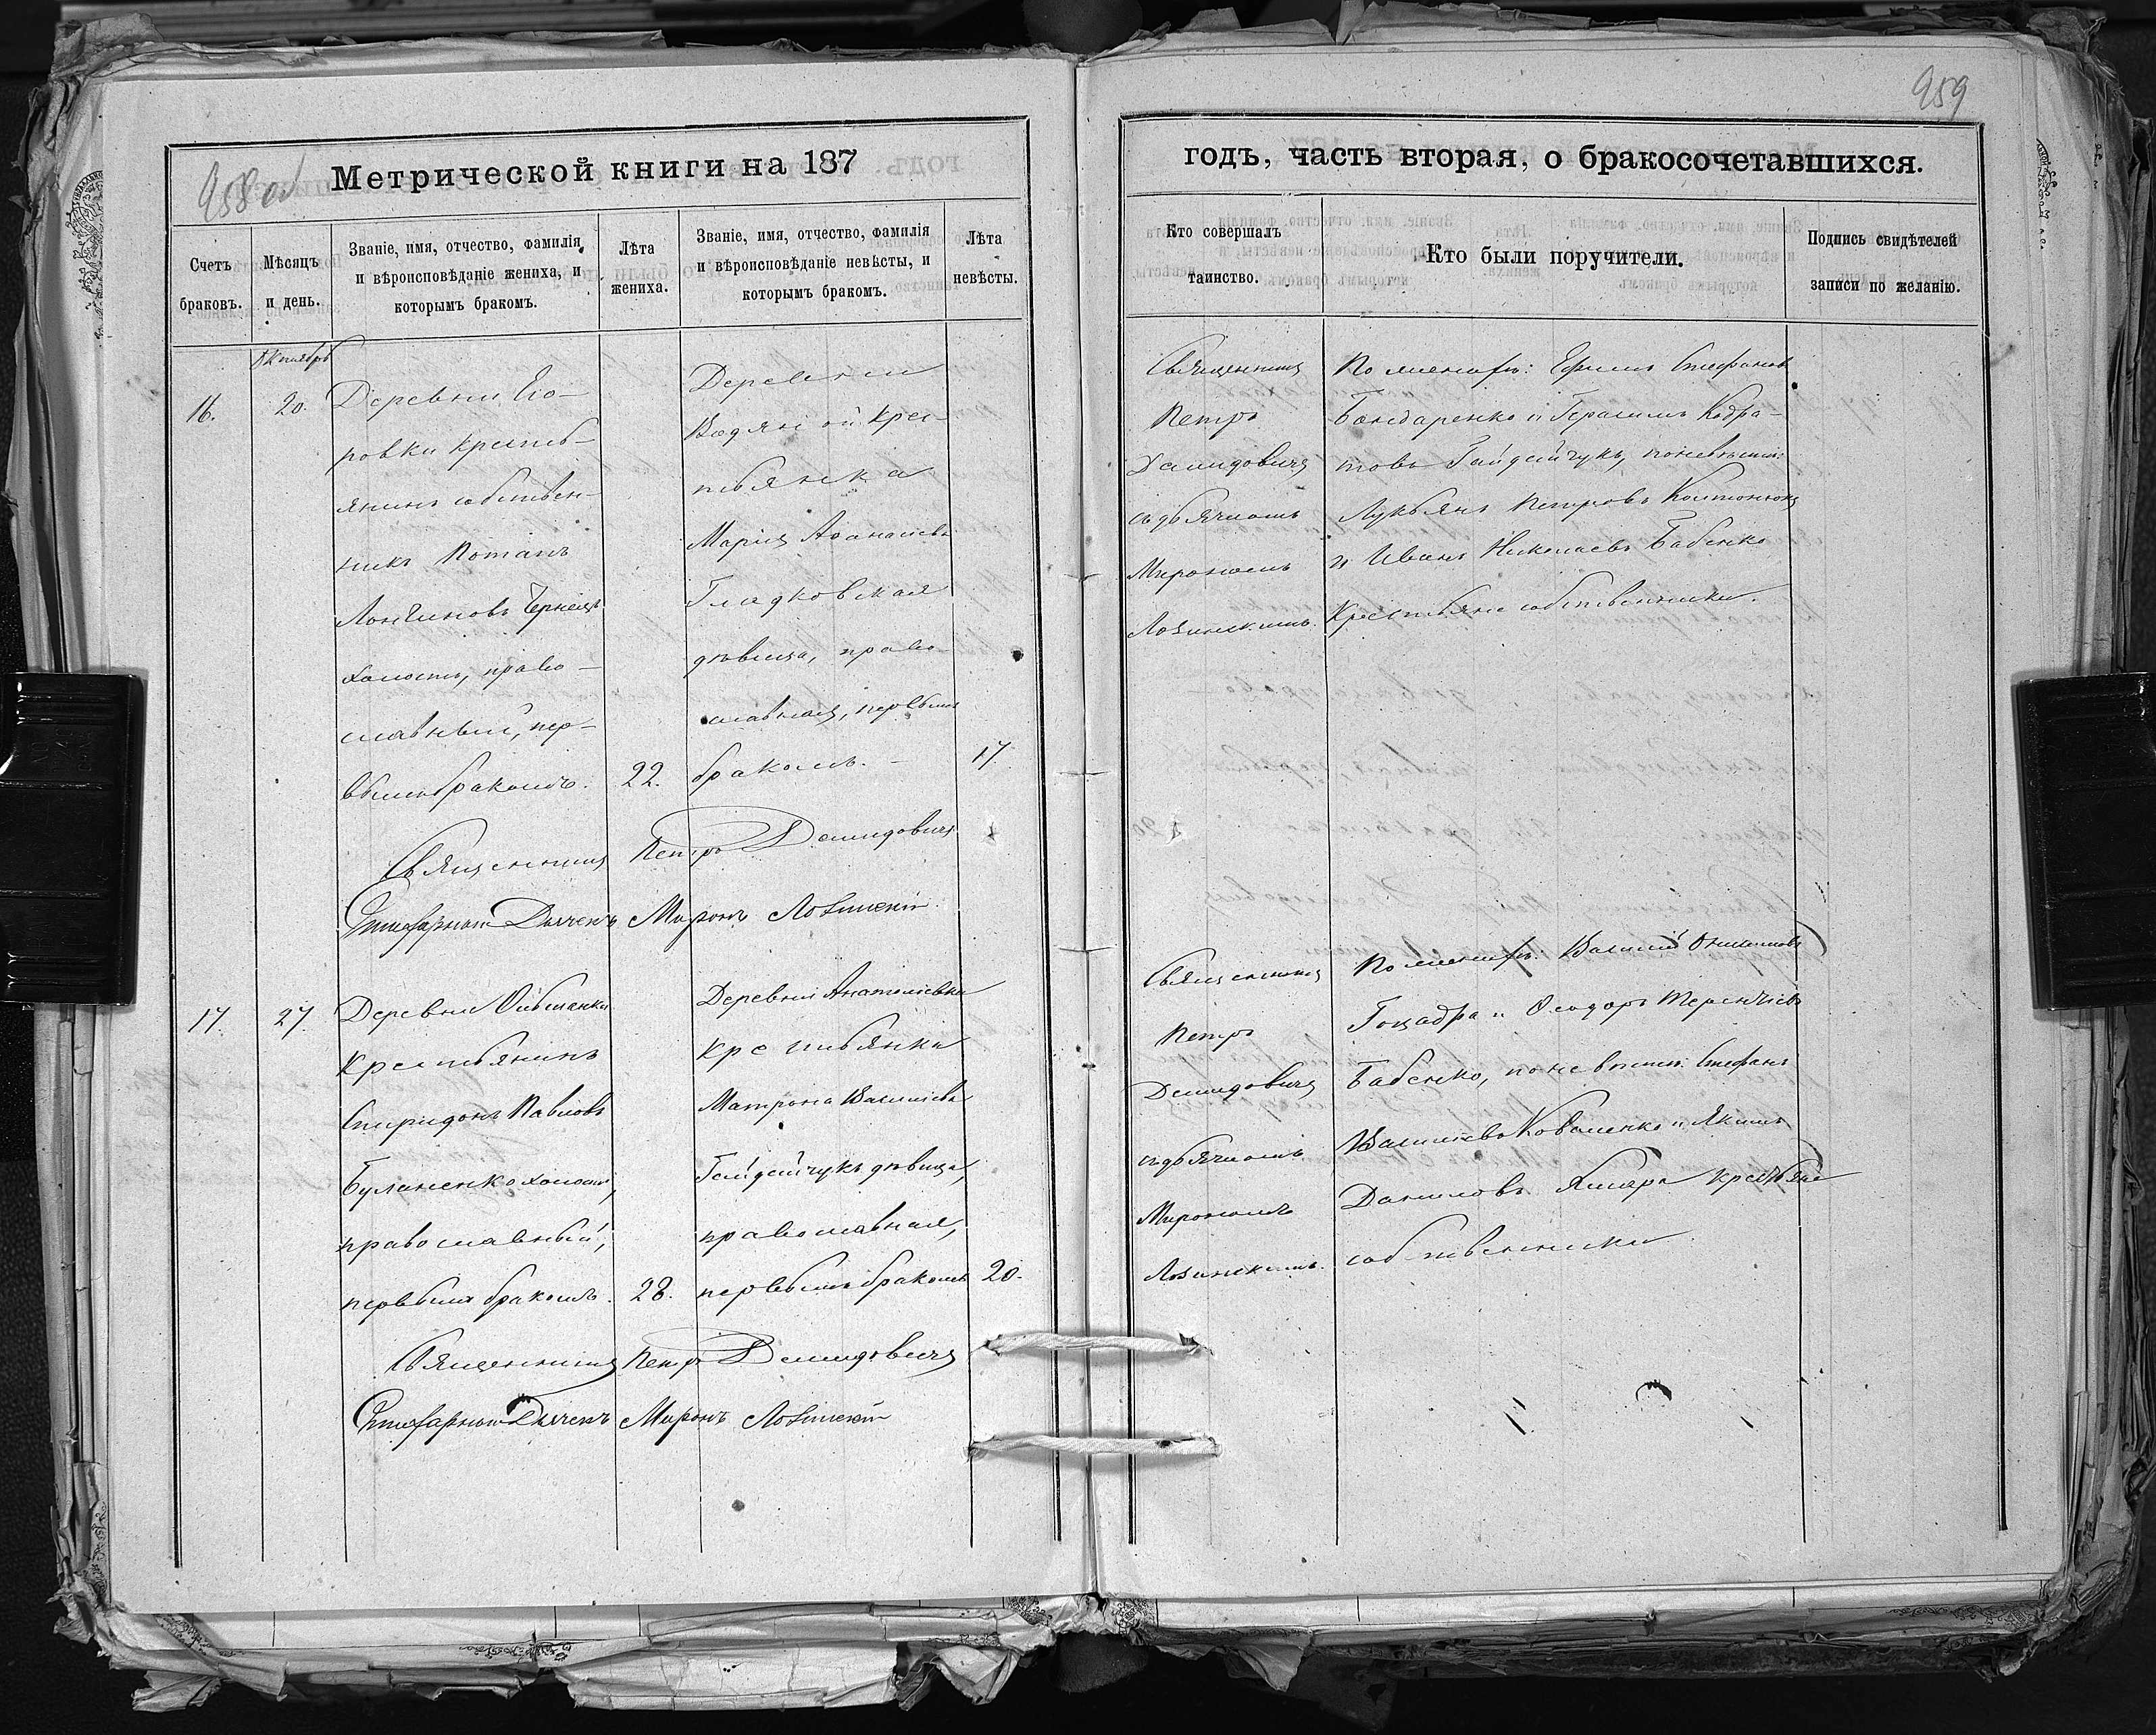 959
958 об
Метрической книги на 187
годъ, часть вторая, о бракосочетавшихся.
Счетъ браковъ.
Мѣсяцъ и день.
Званіе, имя, отчество, фамилія и вѣроисповѣданіе жениха, и которымъ бракомъ.
Лѣта жениха.
Званіе, имя, отчество, фамилія и вѣроисповѣданіе невѣсты, и которымъ бракомъ.
Лѣта невѣсты.
Кто совершалъ таинство.
Кто были поручители.
Подпись свидѣтелей записи по желанію.
Октябрь
16.
20.
Деревни
ровки кресть-
янинъ собствен-
никъ Потапъ
Лонгиновъ Чернецъ
холостъ, право-
славный, пер-
вымъ бракомъ.
22.
Деревни
Водяной крес-
тьянка
Марія Аѳанасіева
Гладковская
дѣвица, право-
славная, первымъ
бракомъ.
17.
Священникъ Петръ Демидовичъ
Дьячекъ Миронъ Лозинскій
Священникъ
Петръ
Демидовичъ
съ дьячкомъ
Мирономъ
Лозинскимъ.
По женихѣ: Ефимъ Стефановъ
Бондаренко и Герасимъ Кодра-
товъ Гайдайчукъ, по невѣстѣ:
Лукьянъ Петровъ
и Иванъ Николаевъ Бабенко
Крестьяне собственники.
17.
27.
Деревни Ольшанки
крестьянинъ
Спиридонъ Павловъ
Буланенко холостъ,
православный,
первымъ бракомъ.
28.
Деревни Анатоліевки
крестьянка
Матрона Василіева
Гайдайчукъ дѣвица,
православная,
первымъ бракомъ
20.
Священникъ Петръ Демидовичъ
Дьячекъ Миронъ Лозинскій
Священникъ
Петръ
Демидовичъ
съ дьячкомъ
Мирономъ
Лозинскимъ.
По женихѣ: Василій
Гоцадра и Ѳеодоръ Терентіевъ
Бабенко, по невѣстѣ: Стефанъ
Василіевъ Коваленко и Якимъ
Даниловъ крестьяне
собственники.